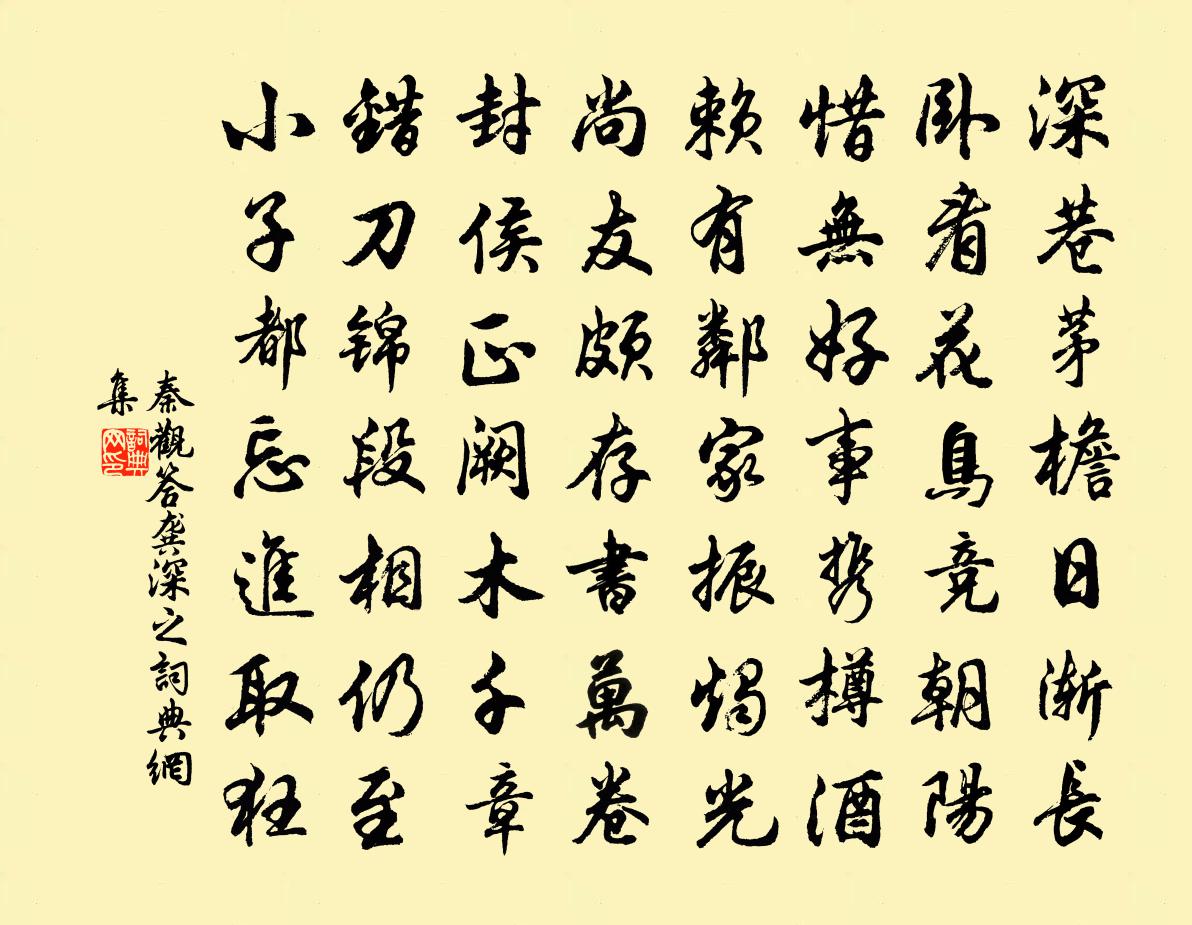 深巷茅檐日漸長
卧看花鳥竞朝陽
惜無好事攜樽酒
賴有鄰家振燭光
尚友頗存書萬卷
封侯正闕木千章
錯刀錦段相仍至
小子都忘進取狂
秦觀答龔深之詞典網
集
詞典
网印